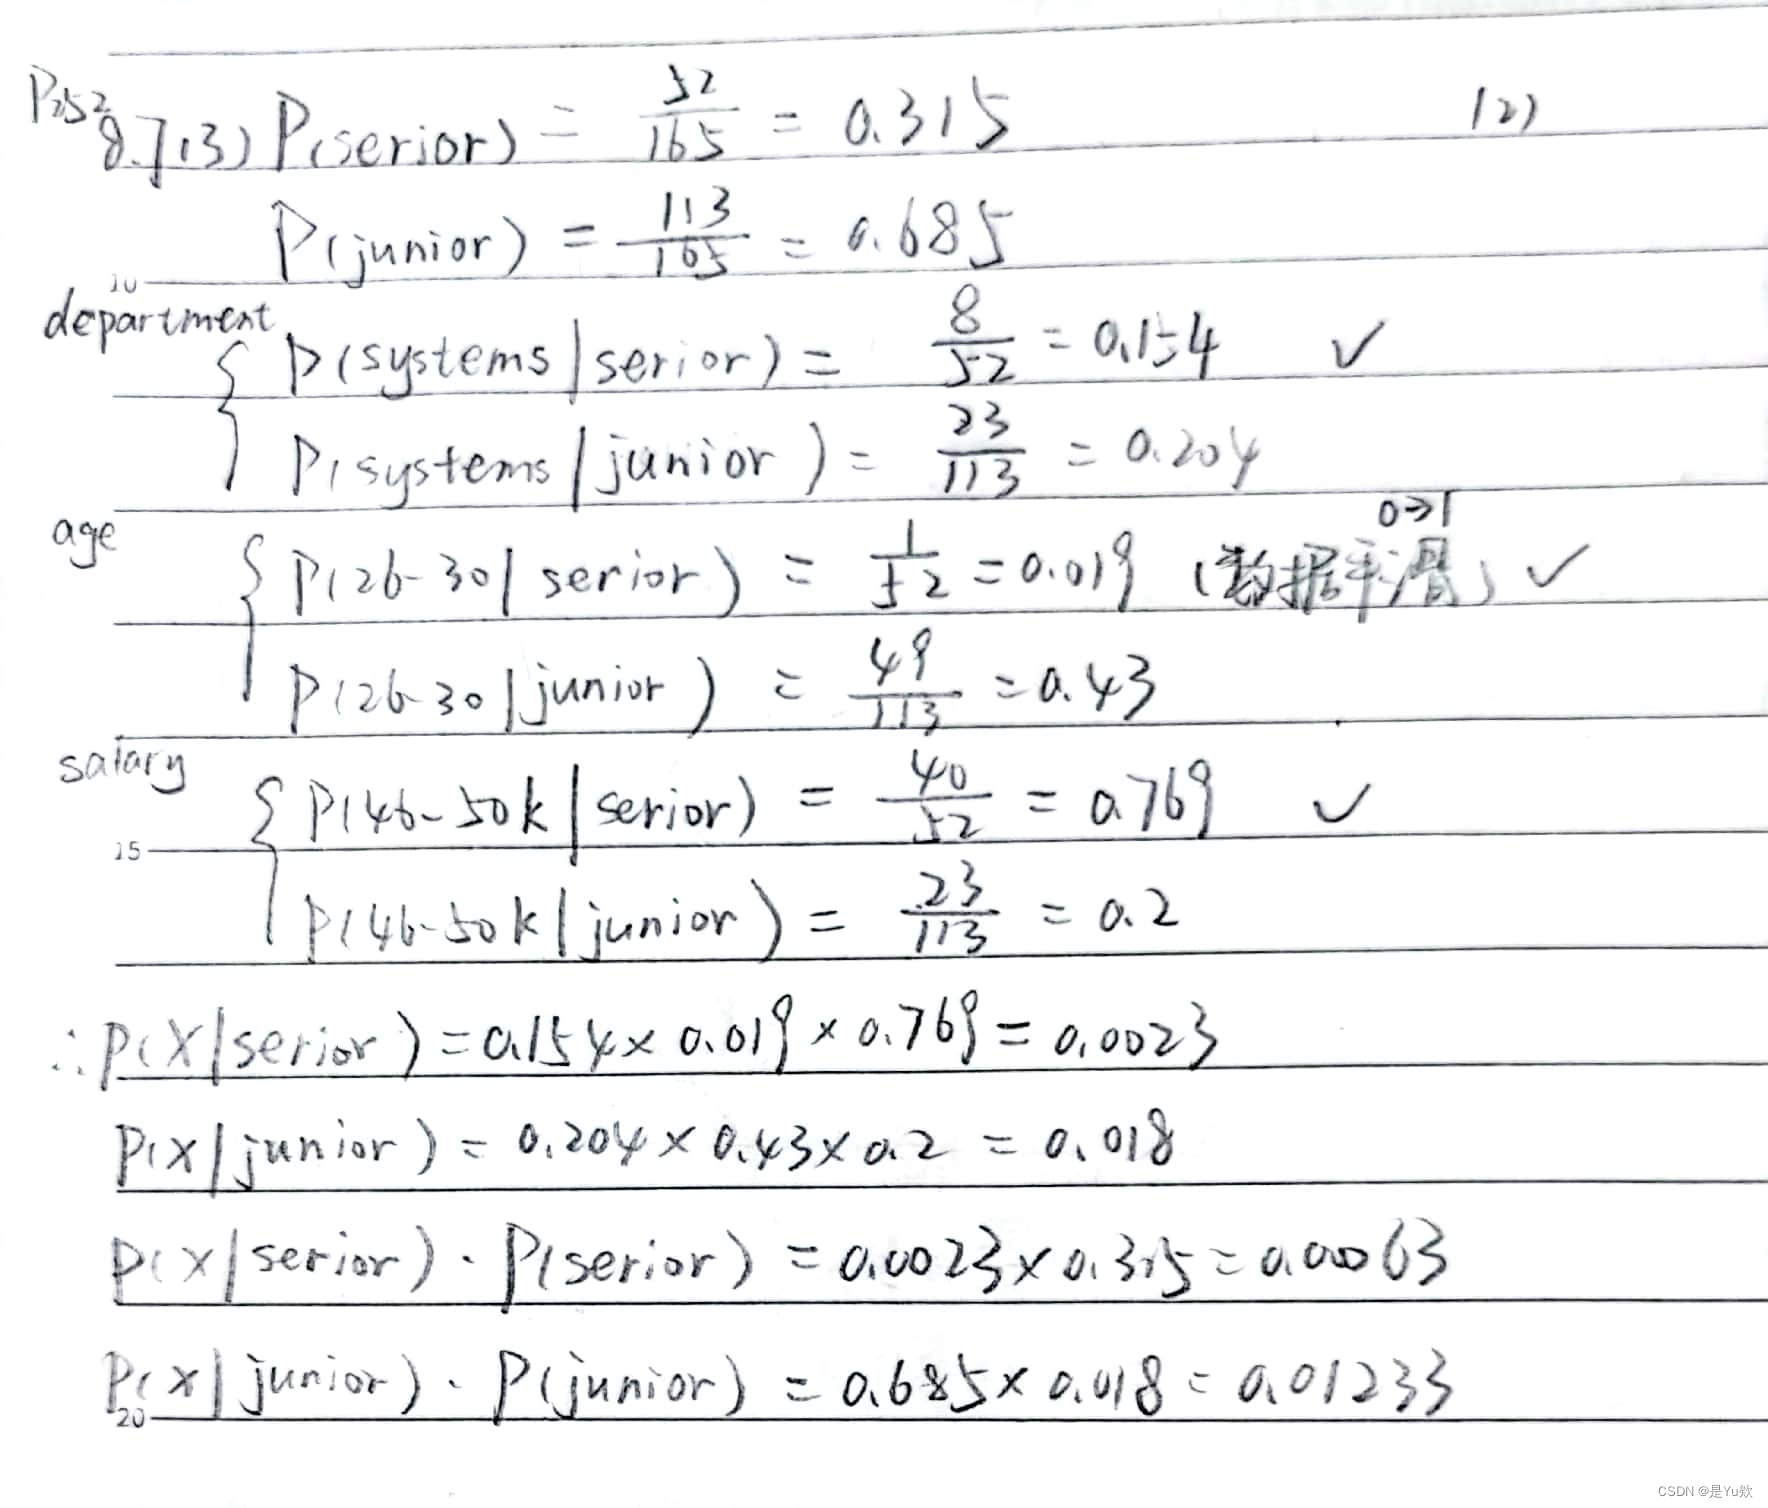 P252
8.7(3) P(serior) = 52/165 = 0.315 (2)
P(junior) = 113/165 = 0.685
10
department
P(systems|serior) = 8/52 = 0.154 ✓
P(systems|junior) = 23/113 = 0.204
age
0→1
P(26-30|serior) = 1/52 = 0.019 (数据平滑) ✓
P(26-30|junior) = 49/113 = 0.43
salary
P(46-50k|serior) = 40/52 = 0.769 ✓
15
P(46-50k|junior) = 23/113 = 0.2
∴P(X|serior) = 0.154 × 0.019 × 0.769 = 0.0023
P(X|junior) = 0.204 × 0.43 × 0.2 = 0.018
P(X|serior) · P(serior) = 0.0023 × 0.315 = 0.00063
P(X|junior) · P(junior) = 0.685 × 0.018 = 0.01233
20
CSDN @是Yu欸